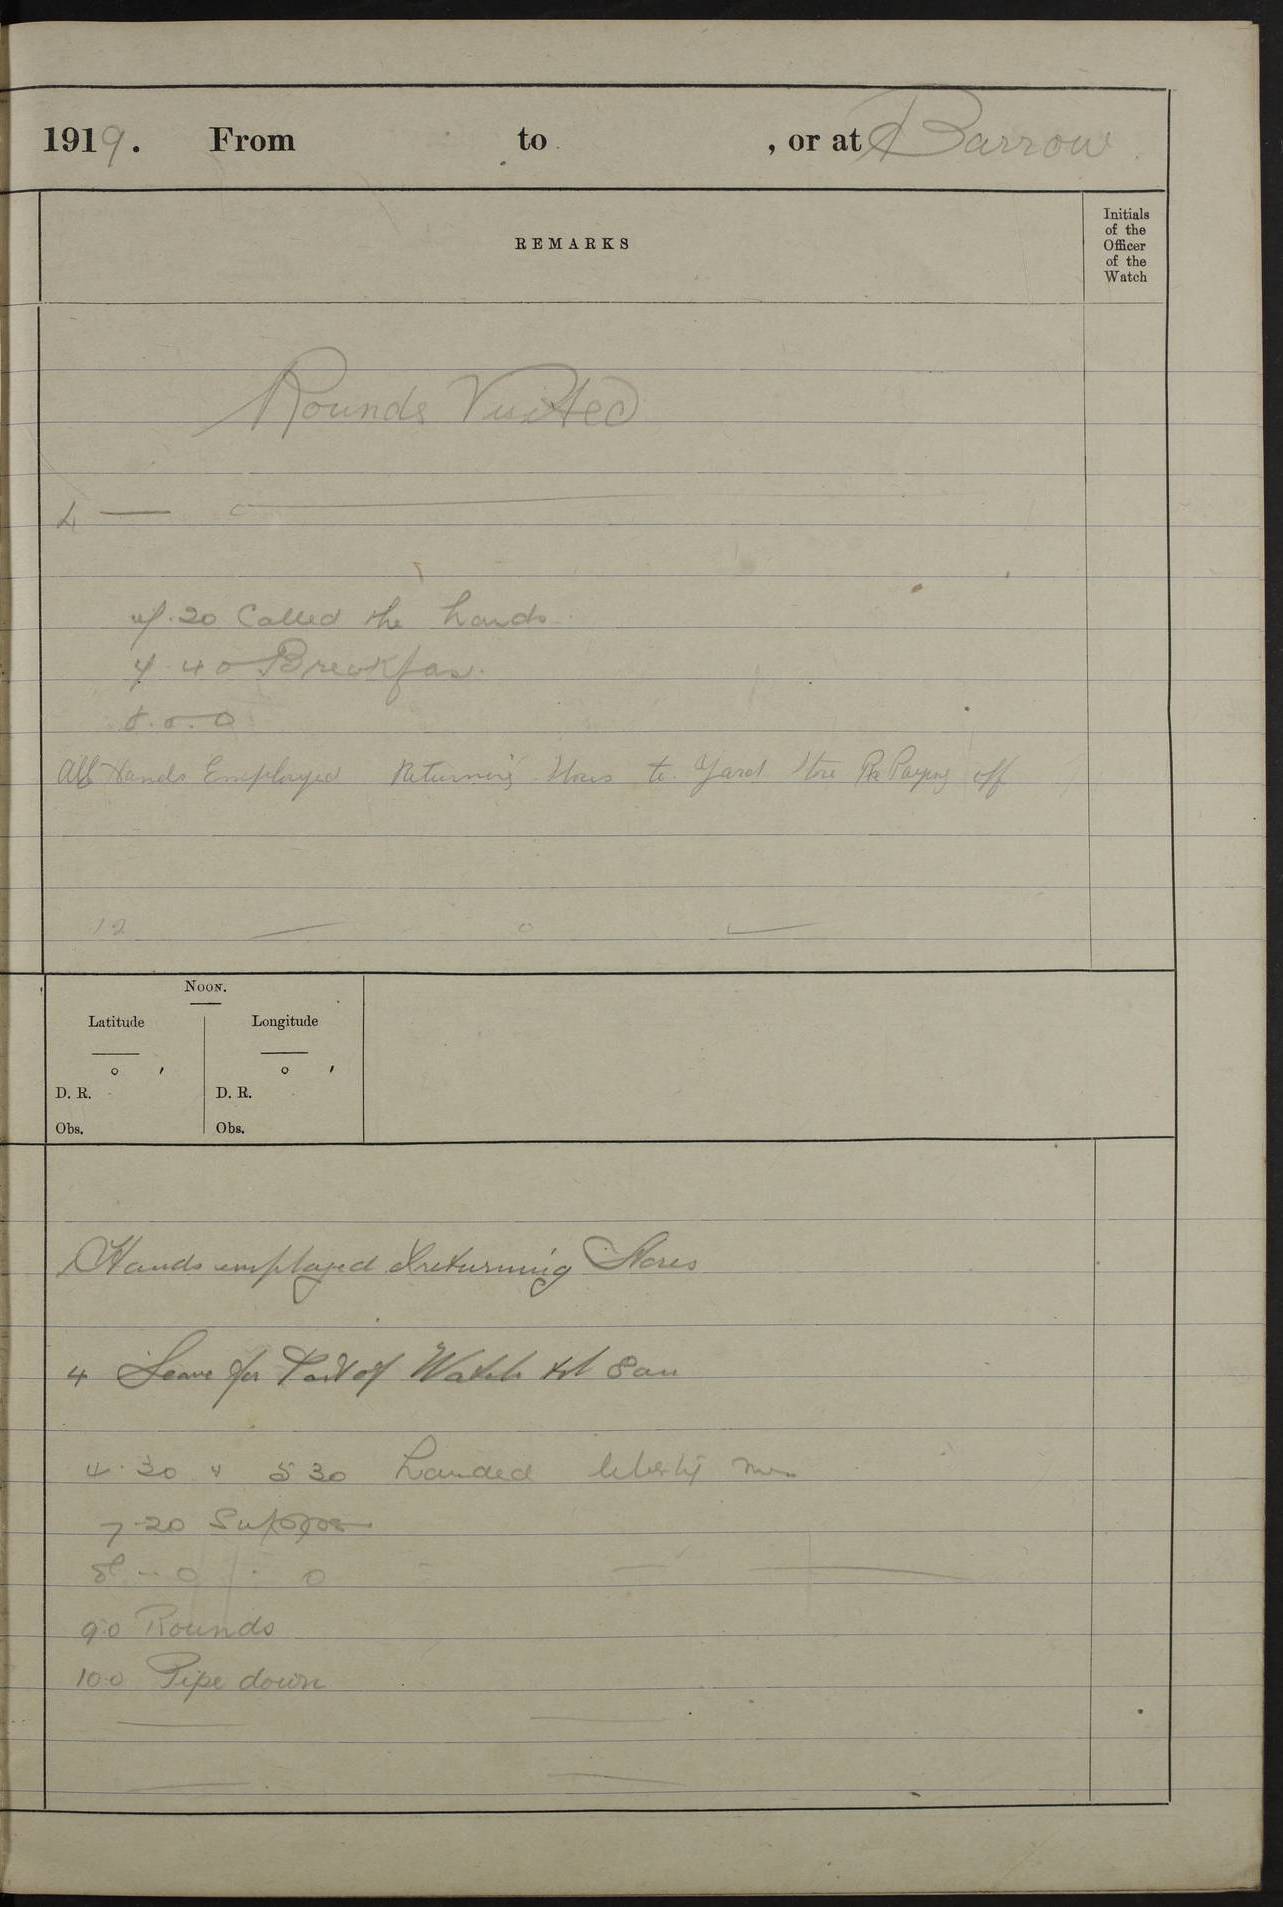 1919. From to , or at Barrow
REMARKS
Initials
of the
Officer
of the
Watch
Rounds Visited
4
20 Called the hands
40 Breakfas
8.0.0
All Hands Employed Returning Stores to Yard Store Paying off
12
Noon.
Latitude Longitude
° ′ ° ′
D. R. D. R.
Obs. Obs.
Hands employed returning Stores
4 Leave for Part of Watch till 8 am
4.30 & 5 30 Landed liberty men
7-20 Supper
8 - 0 - 0
9.0 Rounds
10.0 Pipe down